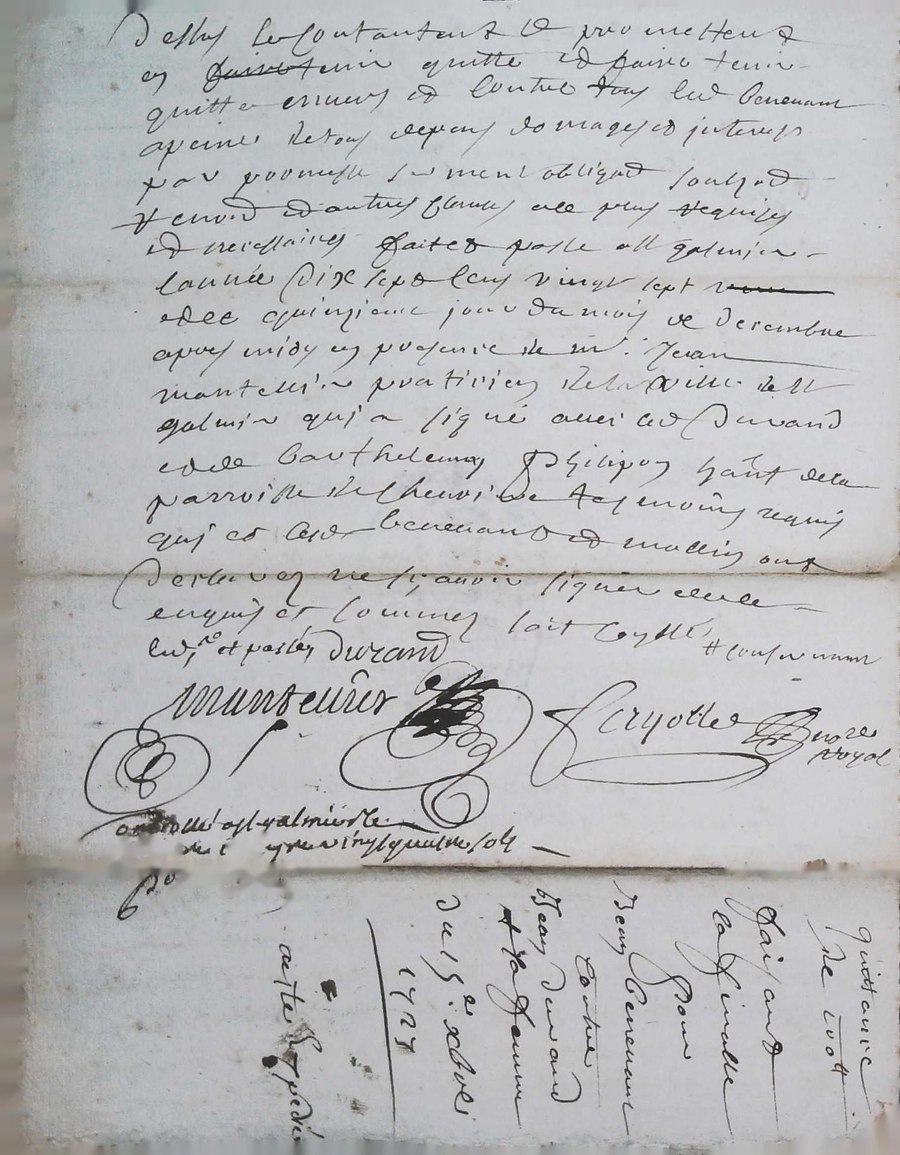 dessus se Contantent & promettent
en faire tenir quitte et faire tenir
quitte envers et Contre tous led benevant
a peine de tous depens domages et interests
par promesse serment obligaõn soubzõn
renonõn et autres Clauses a ce plus requises
et necessaires fait et passé a St galmier
lannée Dix sept Cens vingt sept
et le quinzieme jour du mois de decembre
apres midy en presence de mr. Jean
manteilier praticien de la ville de St
galmier qui a signé avec led Durand
et de Barthelemy Philipon hãnt de la
parroisse de Chevriere tesmoins requis
qui et led benevant et
declarez ne sçavoir signer de ce
enquis et sommez soit Coyssé
et parties Durand
manteilier
notre royal
a St galmier le
vingt quatre sols
quittance
de 100#
faisant
la finalle
pour
Jean benevent
contre
Jean durand
et sa femme
du 15e xbre
1727